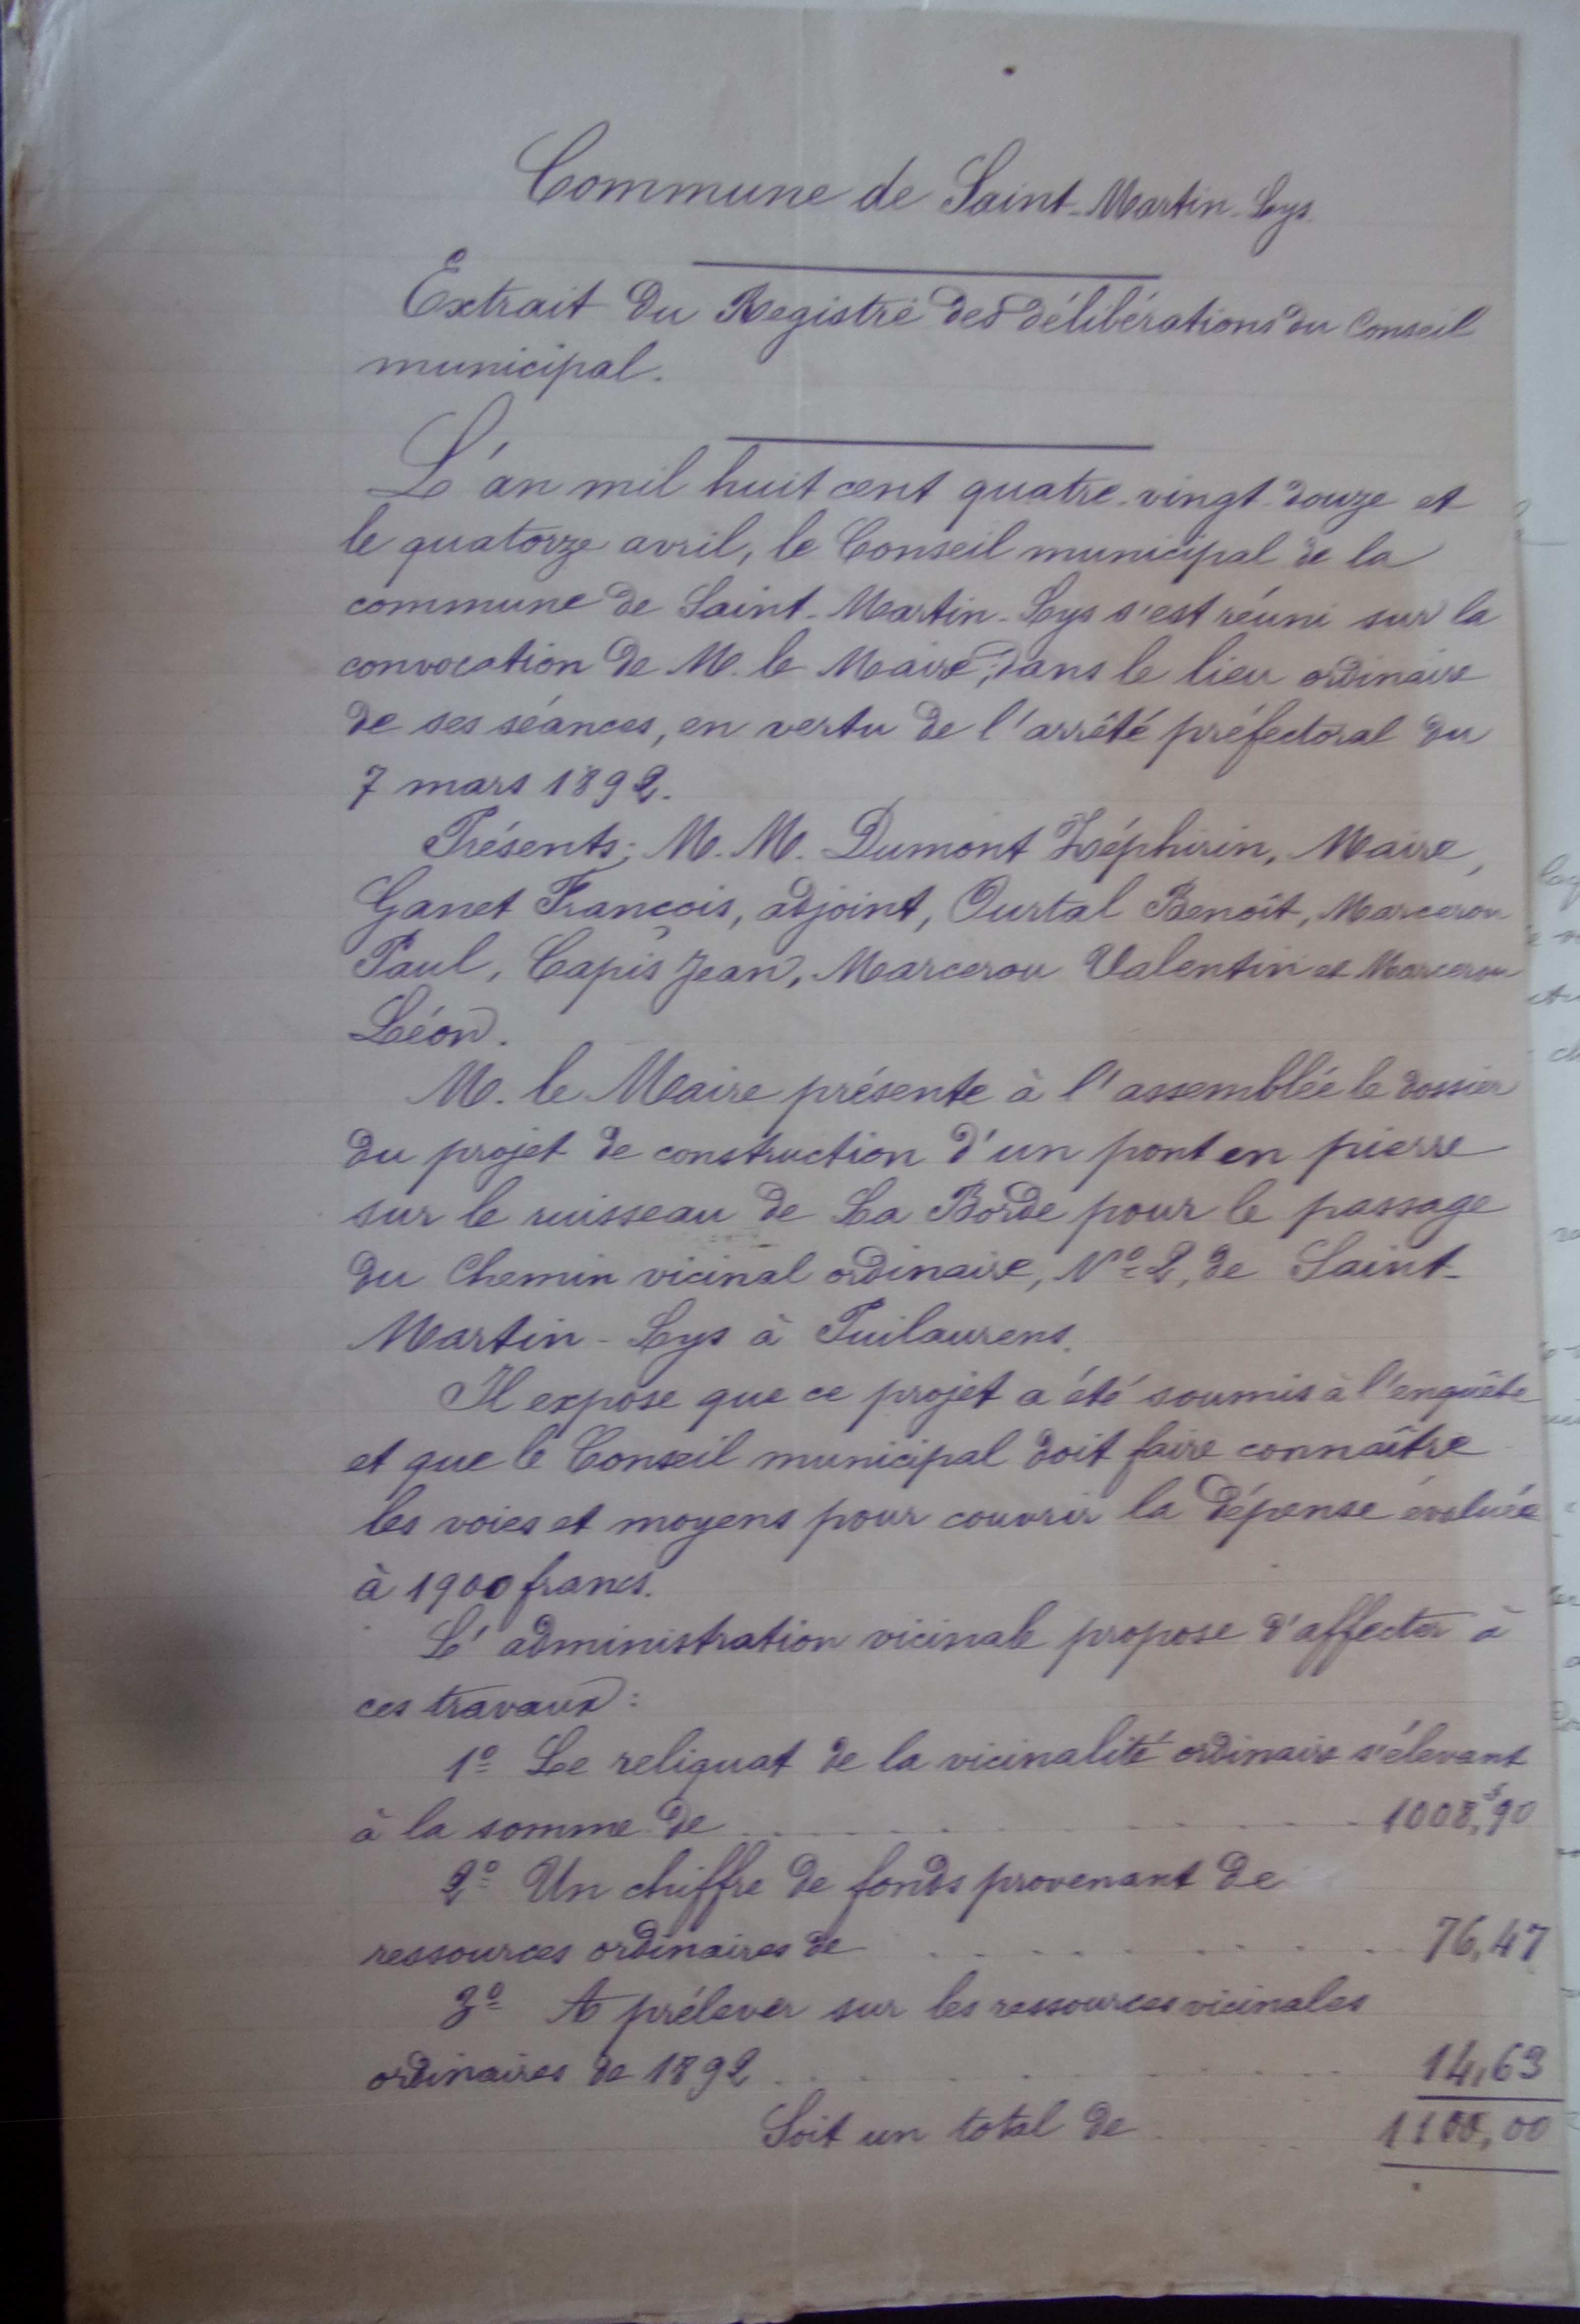 Commune de Saint-Martin-Lys
Extrait du Registre des délibérations du Conseil
municipal.
L'an mil huit cent quatre-vingt-douze et
le quatorze avril, le Conseil municipal de la
commune de Saint-Martin-Lys s'est réuni sur la
convocation de M. le Maire, dans le lieu ordinaire
de ses séances, en vertu de l'arrêté préfectoral du
7 mars 1892.
Présents: M. M. Dumont Zéphirin, Maire,
Ganet François, adjoint, Ourtal Benoît, Marcerou
Paul, Capis Jean, Marcerou Valentin et Marcerou
Léon.
M. le Maire présente à l'assemblée le dossier
du projet de construction d'un pont en pierre
sur le ruisseau de La Borde pour le passage
du Chemin vicinal ordinaire, Nº 2, de Saint-
Martin-Lys à Puilaurens.
Il expose que ce projet a été soumis à l'enquête
et que le Conseil municipal doit faire connaître
les voies et moyens pour couvrir la dépense évaluée
à 1900 francs.
L'administration vicinale propose d'affecter à
ces travaux:
1º Le reliquat de la vicinalité ordinaire s'élevant
à la somme de 1008,90
2º Un chiffre de fonds provenant de
ressources ordinaires de 76,47
3º A prélever sur les ressources vicinales
ordinaires de 1892 14,63
Soit un total de 1100,00